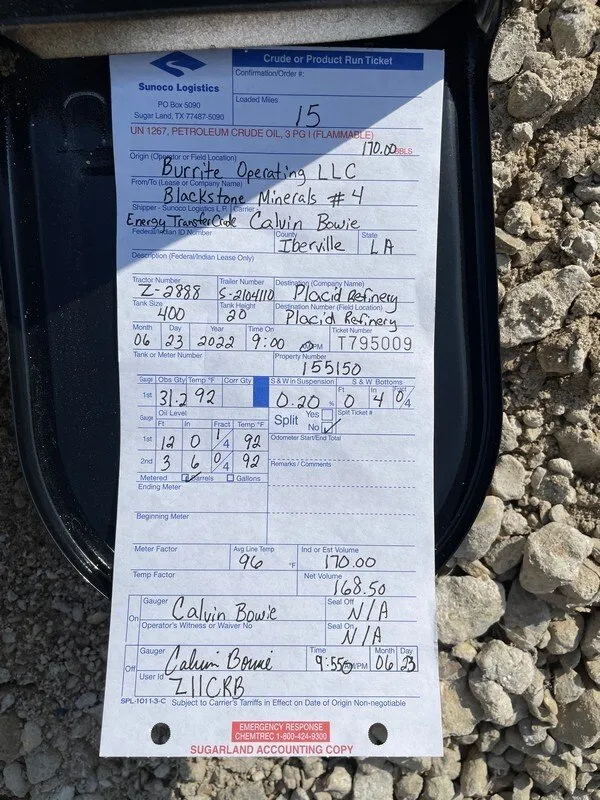 Crude or Product Run Ticket
Sunoco Logistics
PO Box 5090
Sugar Land, TX 77487-5090
Confirmation/Order #:
Loaded Miles
15
UN 1267, PETROLEUM CRUDE OIL, 3 PG I (FLAMMABLE)
170.00 BBLS
Origin (Operator or Field Location)
Burrite Operating LLC
From/To (Lease or Company Name)
Blackstone Minerals #4
Shipper - Sunoco Logistics L.P. Carrier
Energy Transfer Crude Calvin Bowie
Federal/Indian ID Number County State
Iberville LA
Description (Federal/Indian Lease Only)
Tractor Number Trailer Number Destination (Company Name)
Z-2888 S-2104110 Placid Refinery
Tank Size Tank Height Destination Number (Field Location)
400 20 Placid Refinery
Month Day Year Time On Ticket Number
06 23 2022 9:00 PM T795009
Tank or Meter Number Property Number
155150
Gauge Obs Gty Temp °F Corr Gty S & W in Suspension S & W Bottoms
Ft In Fract
1st 31.2 92 0.20 % 0 4 0/4
Gauge Oil Level Split Yes Split Ticket #
Ft In Fract Temp °F No
1st 12 0 1/4 92 Odometer Start/End Total
2nd 3 6 0/4 92 Remarks / Comments
Metered Barrels Gallons
Ending Meter
Beginning Meter
Meter Factor Avg Line Temp Ind or Est Volume
96 °F 170.00
Temp Factor Net Volume
168.50
On Gauger Calvin Bowie Seal Off
N/A
Operator's Witness or Waiver No Seal On
N/A
Off Gauger Calvin Bowie Time Month Day
9:55 AM/PM 06 23
User Id Z11CRB
SPL-1011-3-C Subject to Carrier's Tarriffs in Effect on Date of Origin Non-negotiable
EMERGENCY RESPONSE
CHEMTREC 1-800-424-9300
SUGARLAND ACCOUNTING COPY